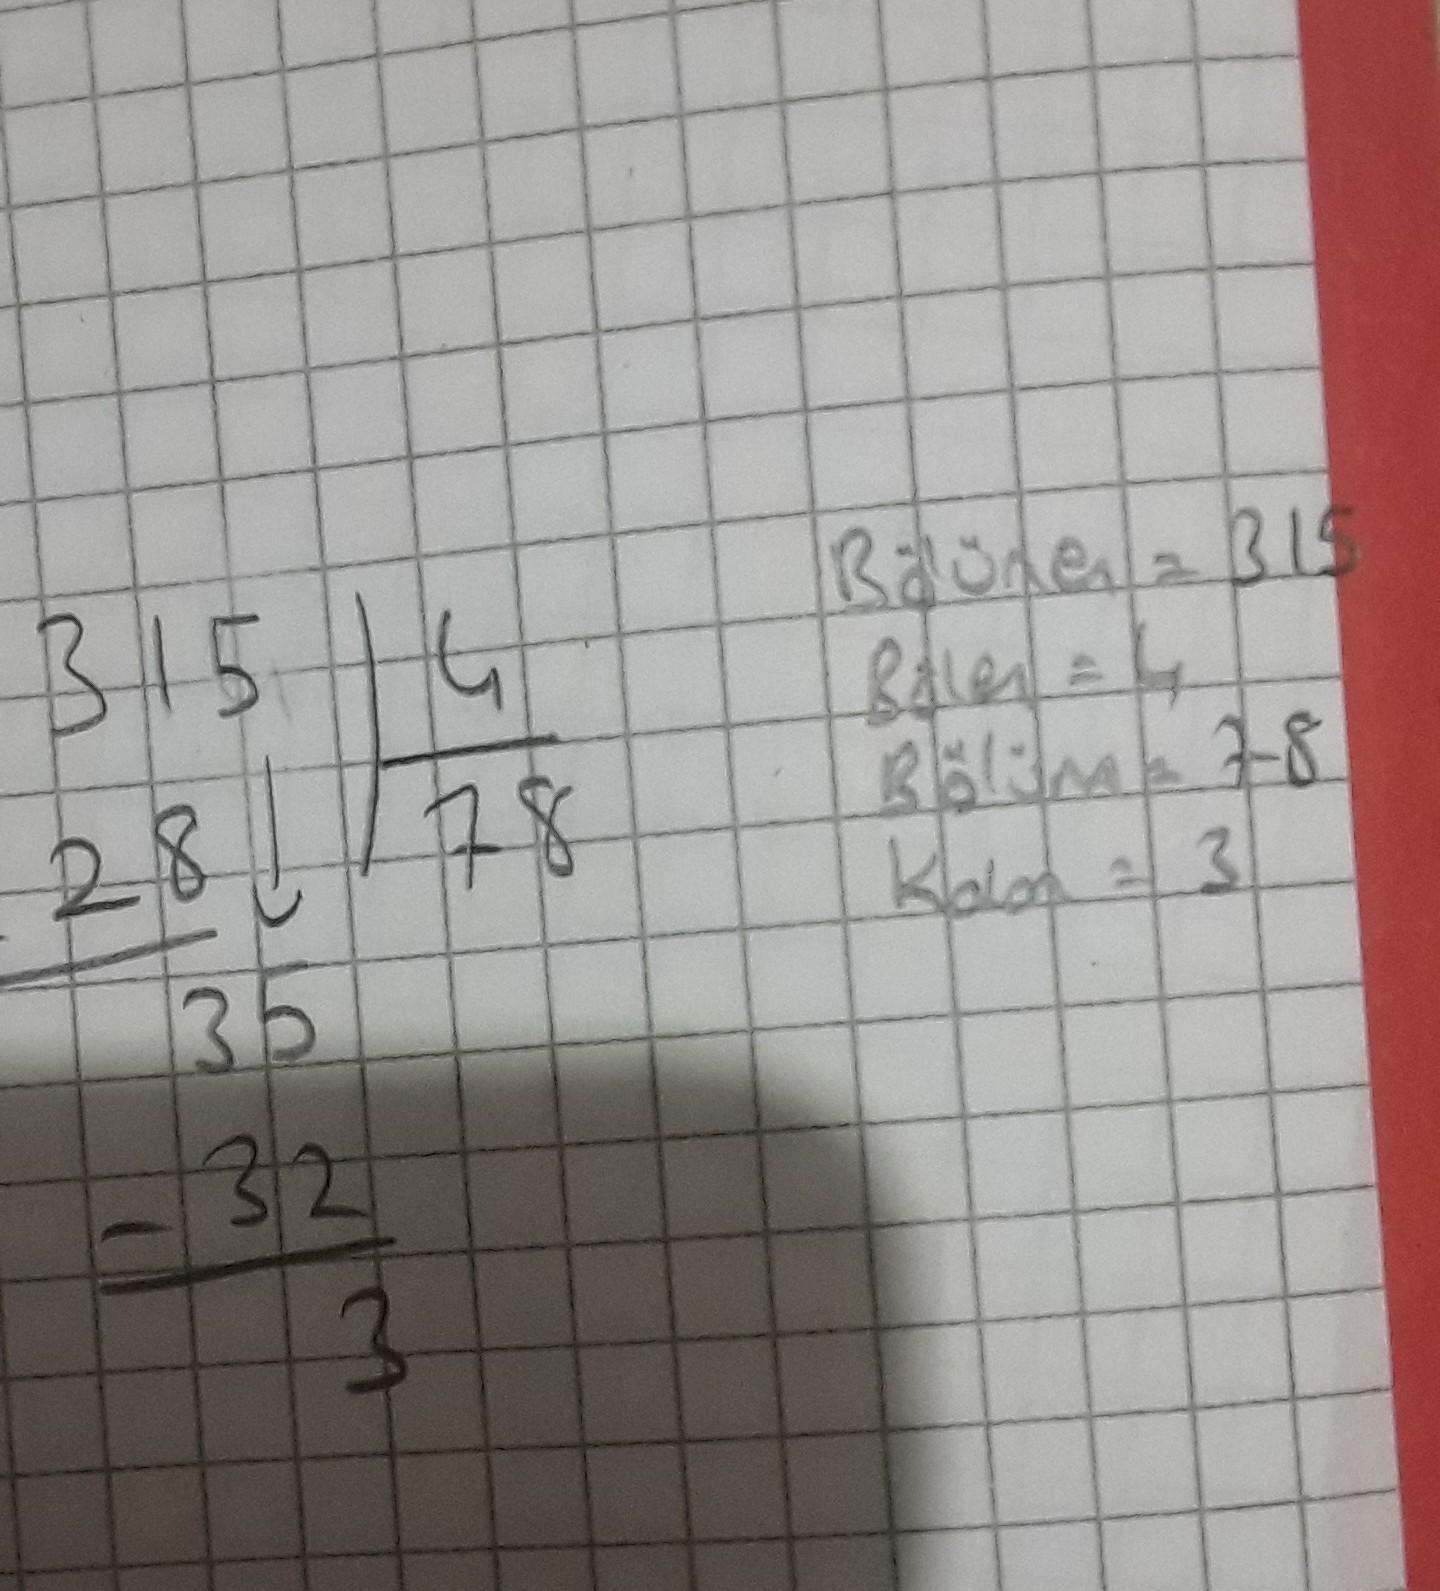 315 | 4
- 28 ↓ 78
35
- 32
3
Bölünen = 315
Bölen = 4
Bölüm = 78
Kalan = 3